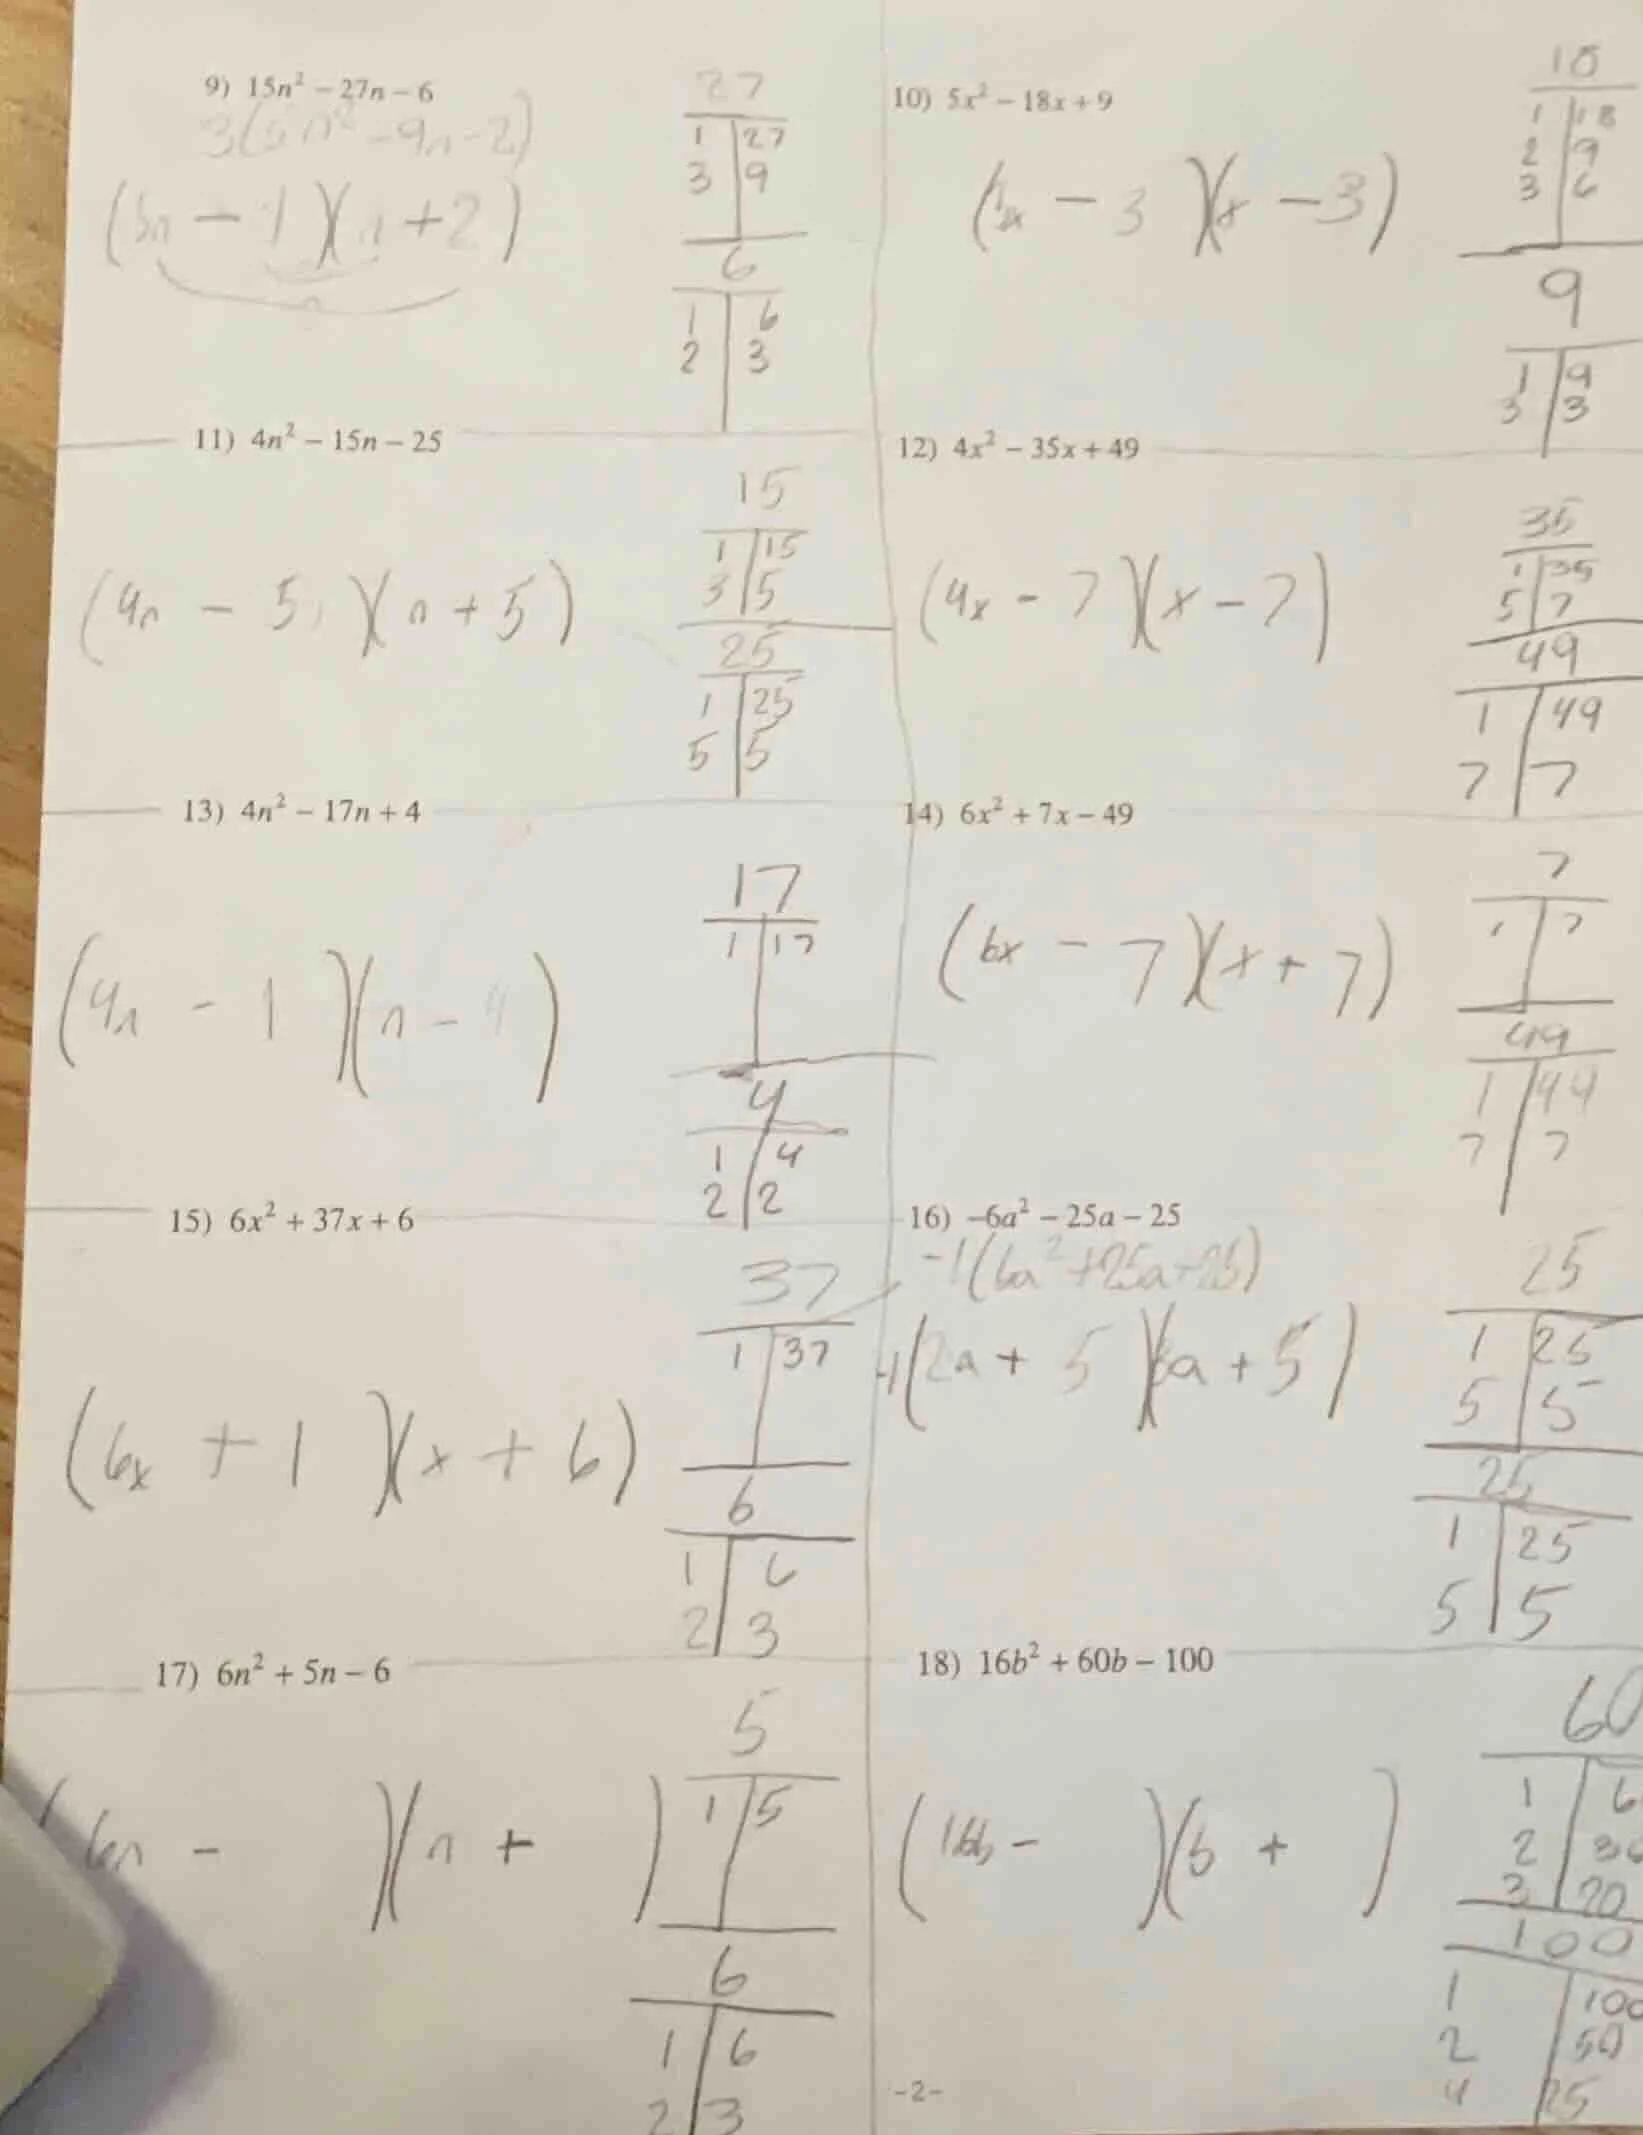 9) 15n² – 27n – 6
3(5n² – 9n – 2)
(5n – 1)(n + 2)
27
1 | 27
3 | 9
6
1 | 6
2 | 3
10) 5x² – 18x + 9
(x – 3)(x – 3)
18
1 | 18
2 | 9
3 | 6
9
1 | 9
3 | 3
11) 4n² – 15n – 25
(4n – 5)(n + 5)
15
1 | 15
3 | 5
25
1 | 25
5 | 5
12) 4x² – 35x + 49
(4x – 7)(x – 7)
35
1 | 35
5 | 7
49
1 | 49
7 | 7
13) 4n² – 17n + 4
(4n – 1)(n – 4)
17
1 | 17
4
1 | 4
2 | 2
14) 6x² + 7x – 49
(6x – 7)(x + 7)
7
1 | 7
49
1 | 44
7 | 7
15) 6x² + 37x + 6
(6x + 1)(x + 6)
37
1 | 37
6
1 | 6
2 | 3
16) –6a² – 25a – 25
–1(6a² + 25a + 25)
-1(2a + 5)(3a + 5)
25
1 | 25
5 | 5
25
1 | 25
5 | 5
17) 6n² + 5n – 6
(6n – )(n + )
5
1 | 5
6
1 | 6
2 | 3
18) 16b² + 60b – 100
(16b – )(b + )
60
1 | 6
2 | 30
3 | 20
100
1 | 100
2 | 50
4 | 25
-2-